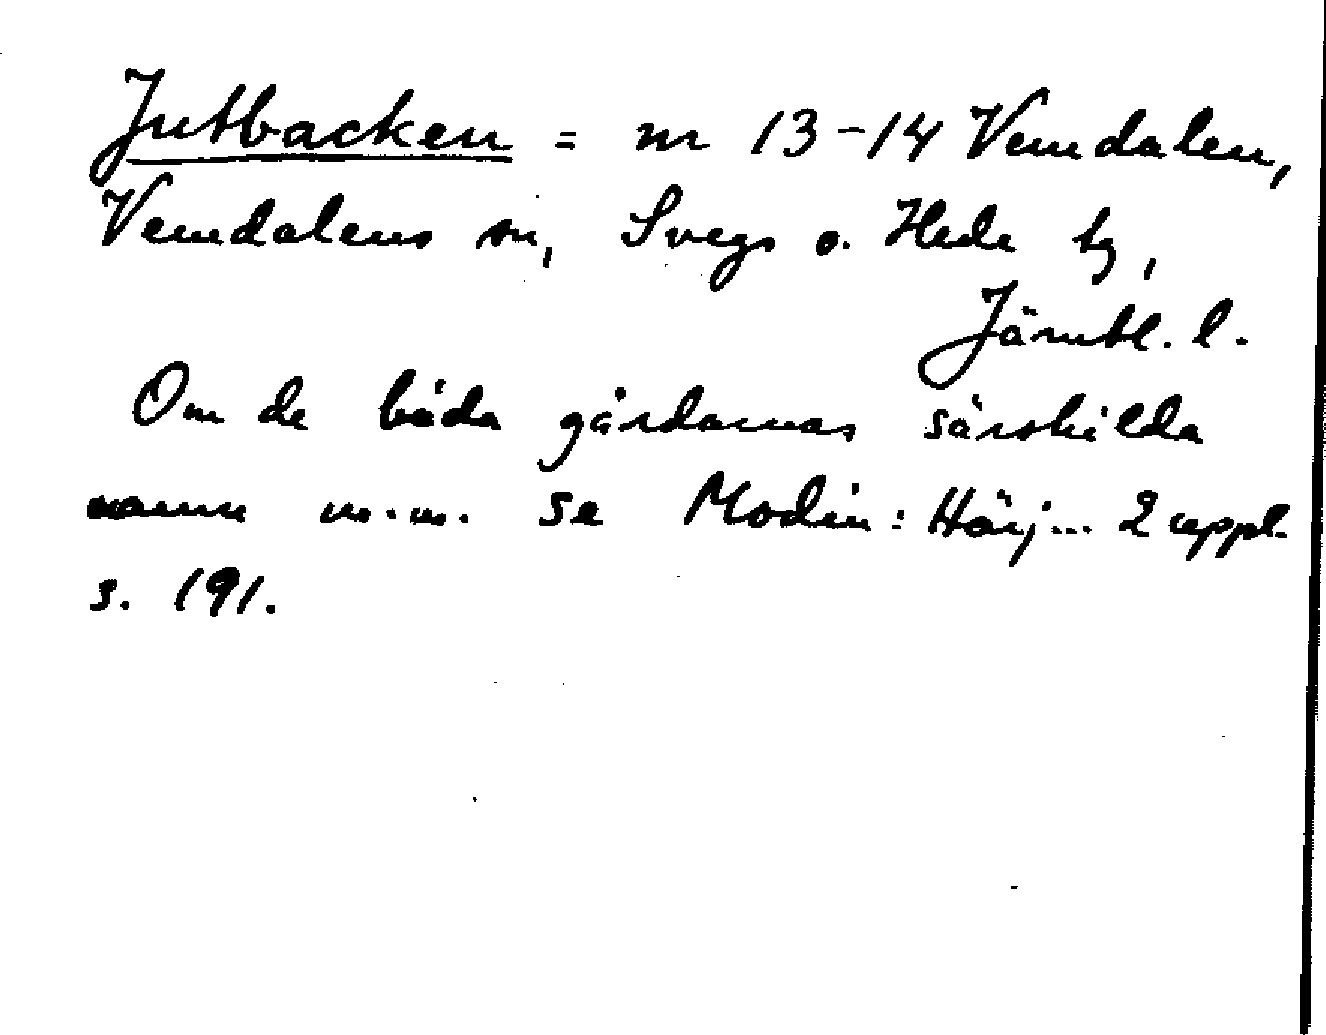 Jutbacken = nr 13-14 Vemdalen,
Vemdalens sn, Svegs o. Hede tg,
Jämtl. l.
Om de båda gårdarnas särskilda
namn m.m. se Modin: Härj... 2 uppl.
s. 191.